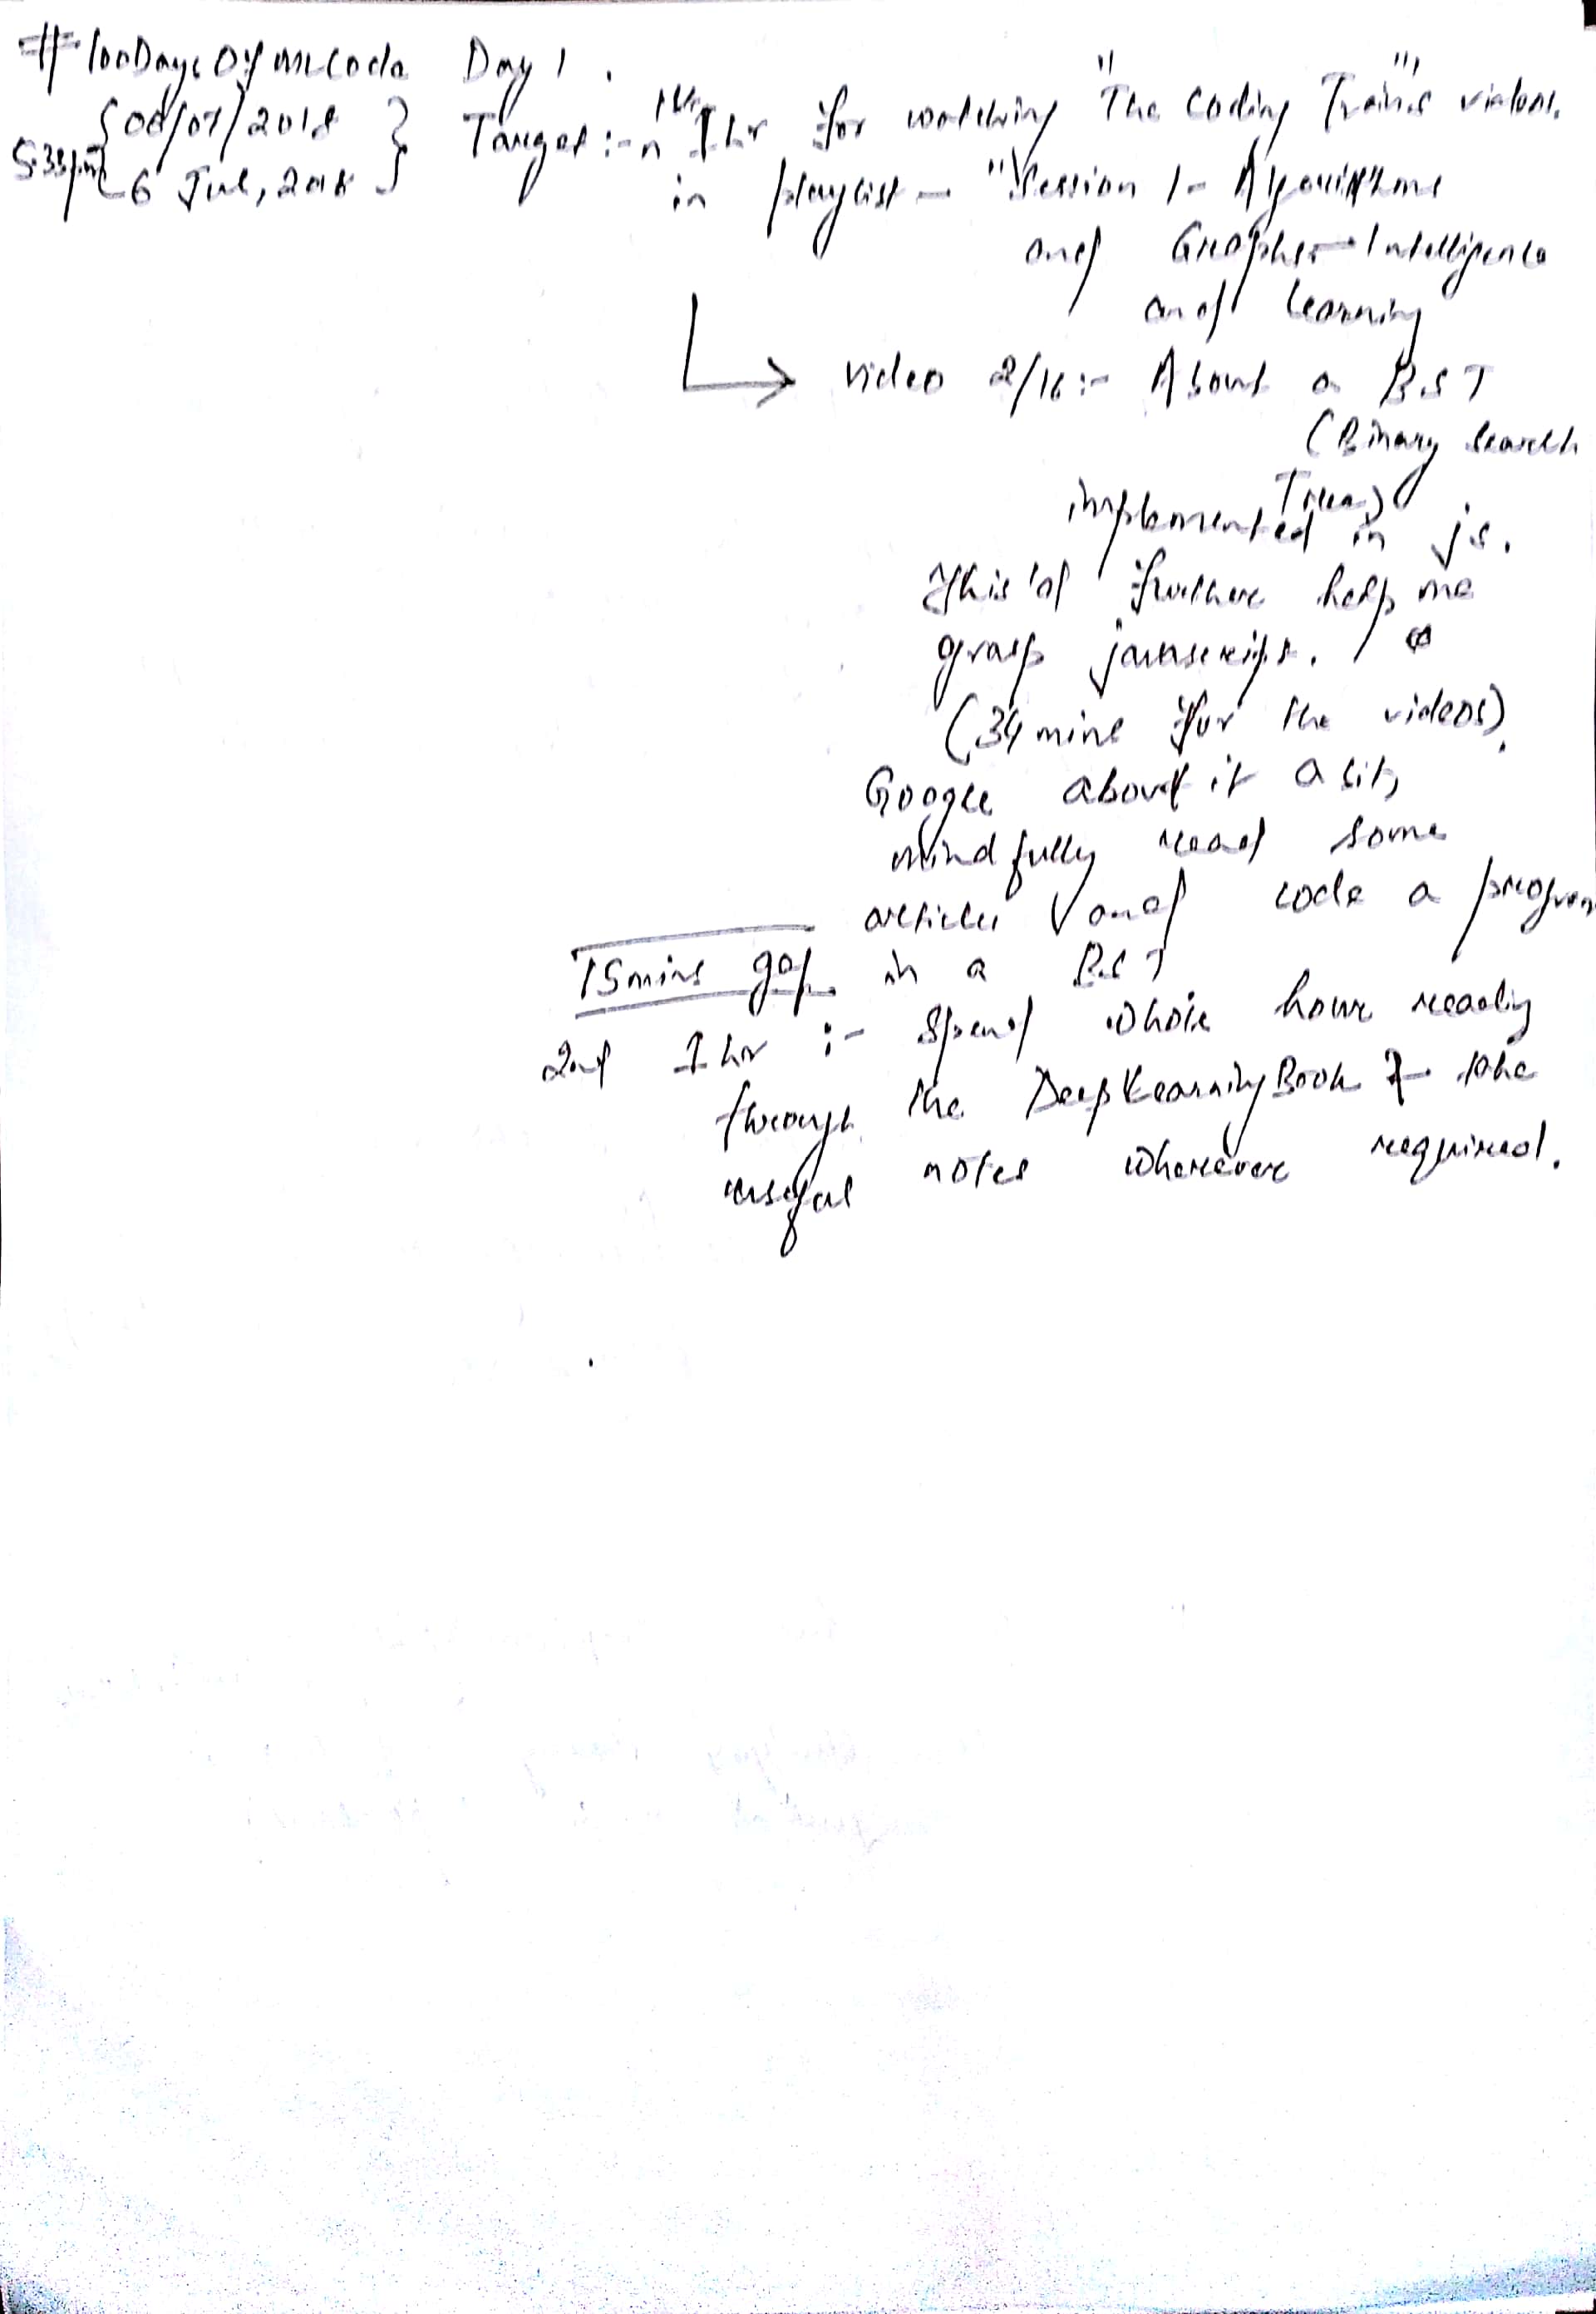 #100DaysOfMLCode Day 1.
{08/07/2018}
5:33pm {6 Jul, 2018}
Target :- 1st 1 hr for watching "The Coding Train"'s videos.
in playlist - "Session 1 - Algorithms
and Graphs - Intelligence
and learning
video 2/16 :- About a BST
(Binary Search
Tree)
implemented in js.
This'd further help me
grasp javascript.
(34 mins for the videos).
Google about it a bit,
mindfully read some
articles and code a program
in a BST
15 mins gap.
2nd 1 hr :- Spend whole hour reading
through the DeepLearningBook & take
useful notes wherever required.